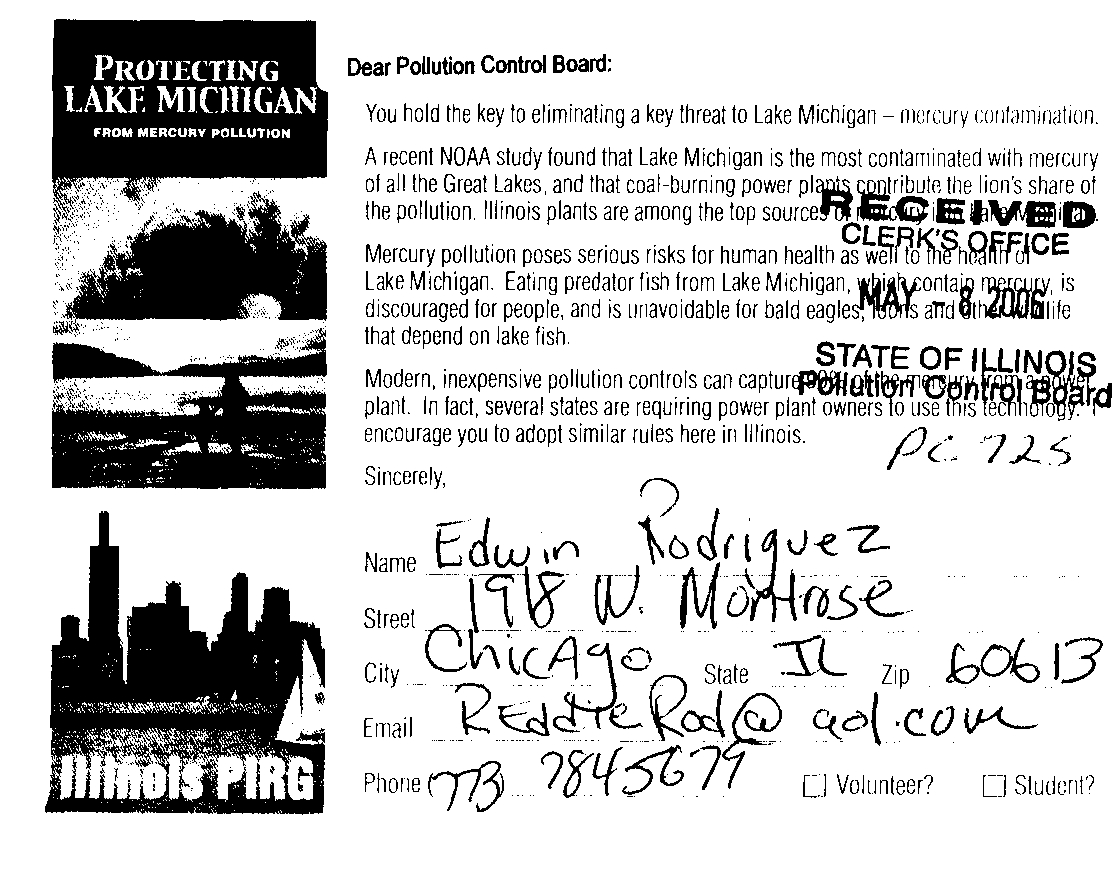 PROTECTING
LAKE MICHIGAN
FROM MERCURY POLLUTION
Illinois PIRG
Dear Pollution Control Board:
You hold the key to eliminating a key threat to Lake Michigan – mercury contamination.
A recent NOAA study found that Lake Michigan is the most contaminated with mercury
of all the Great Lakes, and that coal-burning power plants contribute the lion's share of
the pollution. Illinois plants are among the top sources of mercury into Lake Michigan.
RECEIVED
CLERK'S OFFICE
Mercury pollution poses serious risks for human health as well to the health of
Lake Michigan. Eating predator fish from Lake Michigan, which contain mercury, is
MAY - 8 2006
discouraged for people, and is unavoidable for bald eagles, loons and other wildlife
that depend on lake fish.
STATE OF ILLINOIS
Pollution Control Board
Modern, inexpensive pollution controls can capture 90% of the mercury from a power
plant. In fact, several states are requiring power plant owners to use this technology. I
encourage you to adopt similar rules here in Illinois.
PC 725
Sincerely,
Name Edwin Rodriguez
Street 1918 W. Montrose
City Chicago State IL Zip 60613
Email REddieRod@aol.com
Phone (773) 7845679
Volunteer? Student?